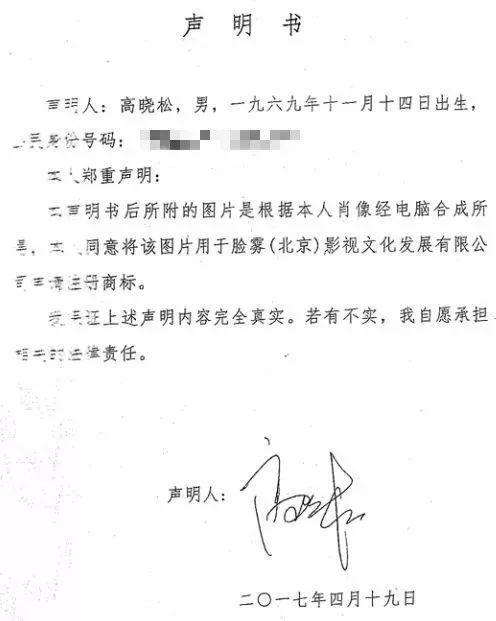 声明书
声明人：高晓松，男，一九六九年十一月十四日出生，
公民身份号码：
本人郑重声明：
本声明书后所附的图片是根据本人肖像经电脑合成所
，本人同意将该图片用于脸雾(北京)影视文化发展有限公
司申请注册商标。
保证上述声明内容完全真实。若有不实，我自愿承担
相关的法律责任。
声明人：
二〇一七年四月十九日